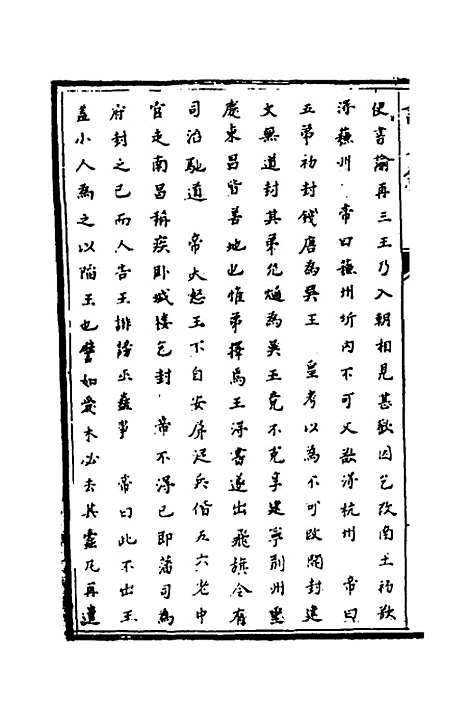 使書諭再三王乃入朝相見甚歡因乞改南土初欲
得蘇州　帝曰蘇州圻内不可又欲得杭州　帝曰
五弟初封錢唐為吳王　皇考以為不可改開封建
文無道封其弟允熥為吳王竟不克享建寧荊州重
慶東昌皆善地也惟弟擇焉王得書遂出飛旗令有
司治馳道　帝大怒王不自安屏從兵偕五六老中
官走南昌稱疾卧城樓乞封　帝不得已即藩司為
府封之已而人告王誹謗巫蠱事　帝曰此不出王
蓋小人為之以陷王也譬如愛木必去其蠹凡再遣